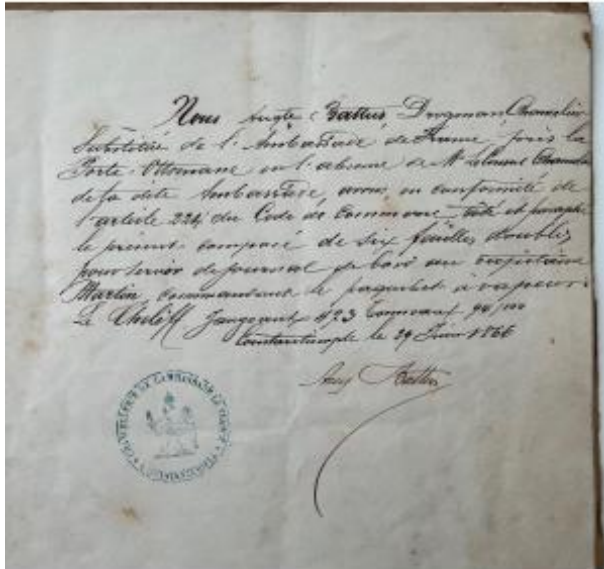 Nous Augte Battus Drogman Chancelier
Substitué de l'Ambassade de France, près la
Porte Ottomane en l'absence de Mr Chancelier
de la dite Ambassade, avons en conformité de
l'article 224 du Code de Commerce, coté et paraphé
le présent composé de six feuilles doubles
pour servir de journal de bord au capitaine
Martin, commandant le paquebot à vapeur
Le Chéliff jaugeant 423 tonneaux 94/100
Constantinople le 29 1866
Aug Battus
CHANCELLERIE DE L'AMBASSADE DE FRANCE
CONSTANTINOPLE